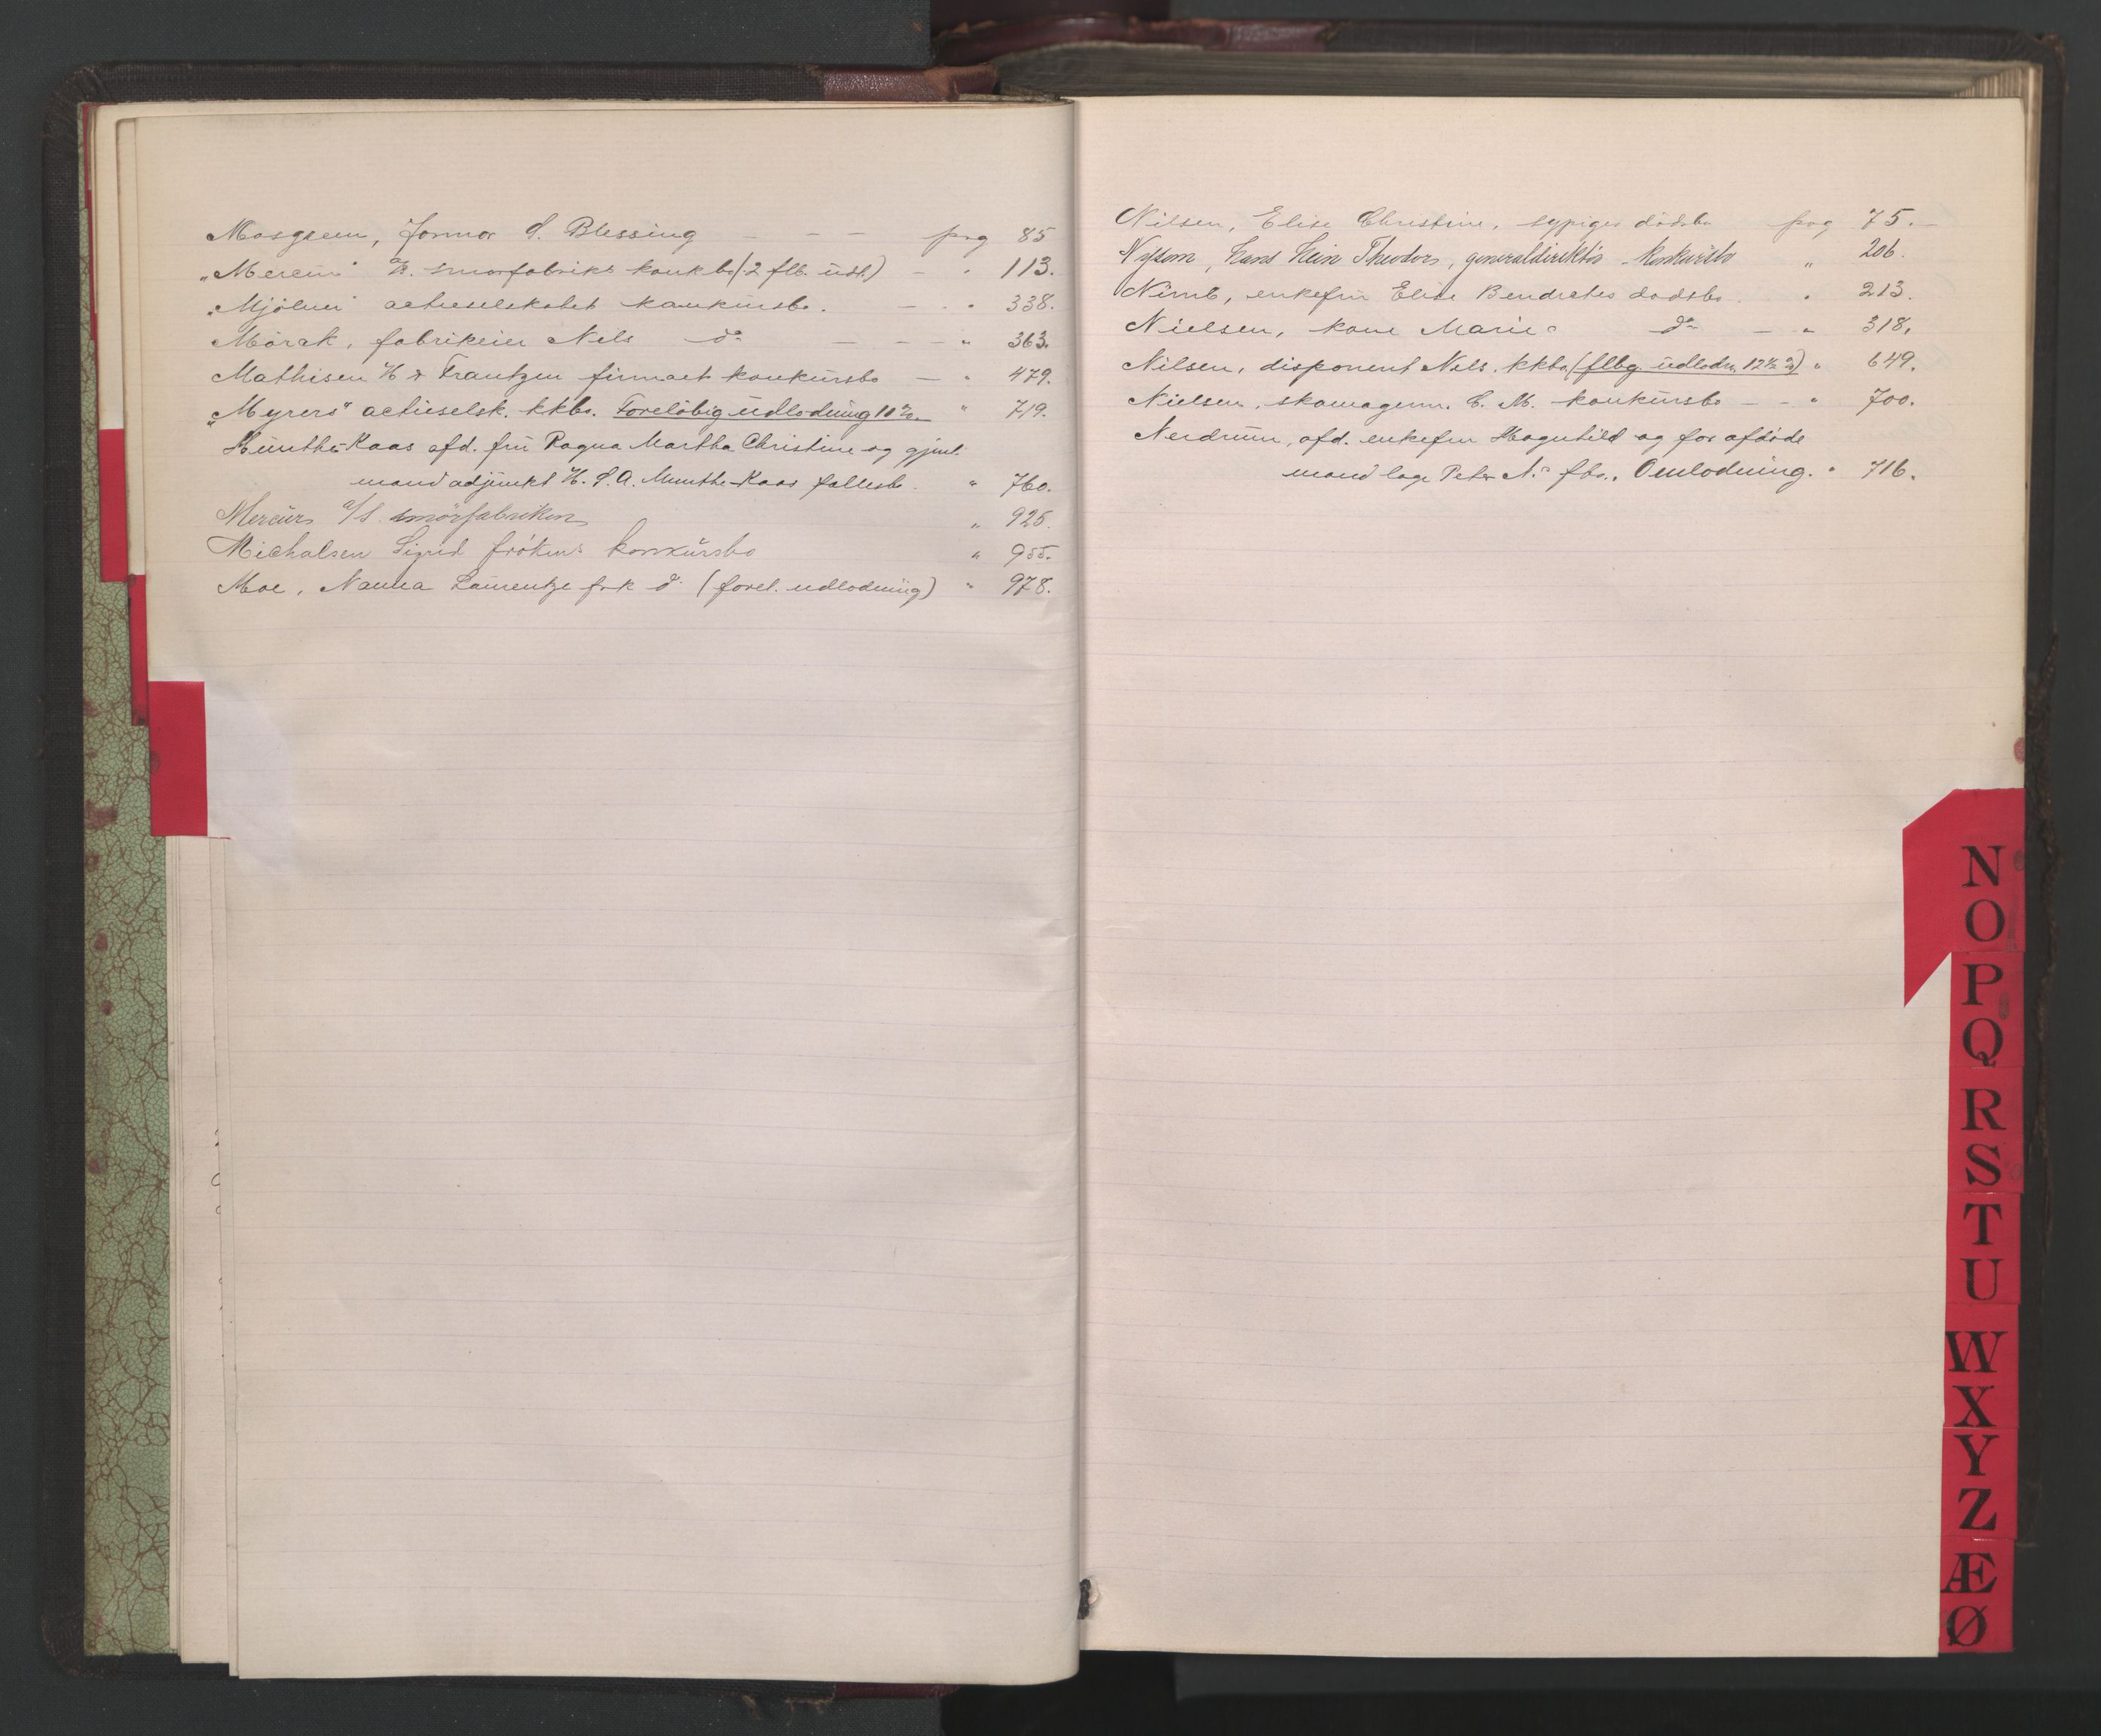 Mosgreen, Jonmar S. Blessing — — — pag 85
„Mercur" a/s. smørfabriks konkbo (2 flb. udl.) — " 113.
„Mjölner" actieselskabet konkursbo. — " 338.
Mörak, fabrikeier Nels do — — — " 363.
Mathisen H & Frantzen firmaet konkursbo — " 479.
„Myrens" actieselsk. kkbo. Foreløbig udlodning 10% " 719.
Munthe-Kaas afd. fru Ragna Martha Christine og gjenl.
mand adjunkt H. S. A. Munthe-Kaas fallesbo. " 760.
Mercur a/s. smørfabriken " 925.
Michalsen Sigrid frøkens konkursbo " 955.
Moe, Nanna Laurentze frk do (forel. udlodning) " 978.
Nilsen, Elise Christine, sypiges dödsbo pag 75.—
Nyssom, Hans Hein Theodor, generaldirektör - konkursbo " 206.
Nimb, enkefru Elise Bendrates dødsbo " 213.
Nielsen, kone Maries do — " 318.
Nilsen, disponent Nels. kkbo (flbg. udlodn. 12½ %) " 649.
Nielsen, skomagerm. C. M. konkursbo — — " 700.
Nerdrum, afd. enkefru Hagnhild og før afdøde
mand læge Peter N.s fbo., Omlodning. " 716.
N
O
P
Q
R
S
T
U
W
X
Y
Z
Æ
Ø